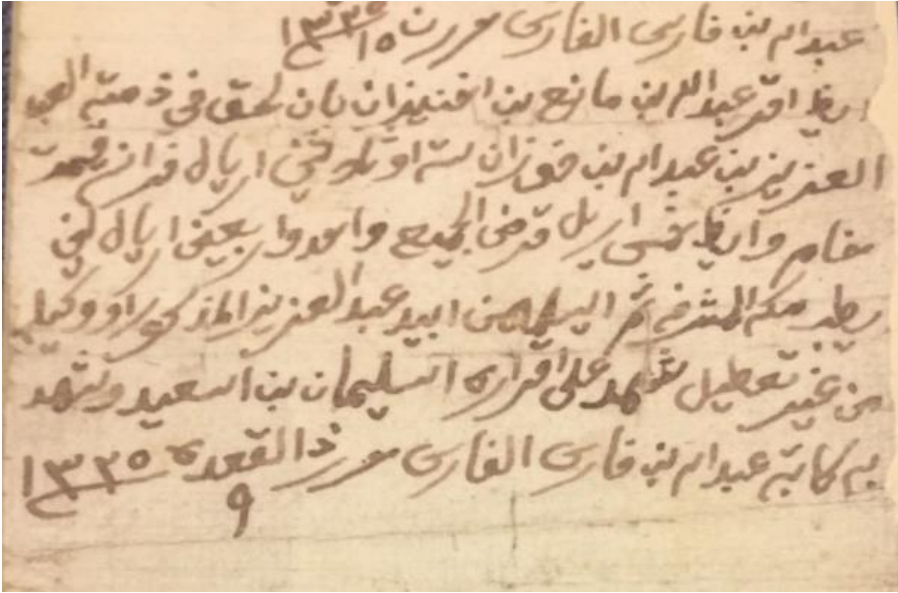 عبدالله بن فارس الفارس حرر ١٥ ١٣٣٥
ايظ اقر عبدالله بن مانع بن بان لحق في ذمته العبد
العزيز بن عبدالله بن فوزان ستة او ثلاثين اريال فرانسه قيمة
خام وايظ خمس اريل قرض الجميع واحد واربعين اريال
مكة المشرفة بيد عبدالعزيز المذكور او وكيله
من غير تعطيل شهد على اقراره السليمان بن السعيد وشهد
به كاتبه عبدالله بن فارس الفارس حرر ذا القعدة ١٣٣٥
٩